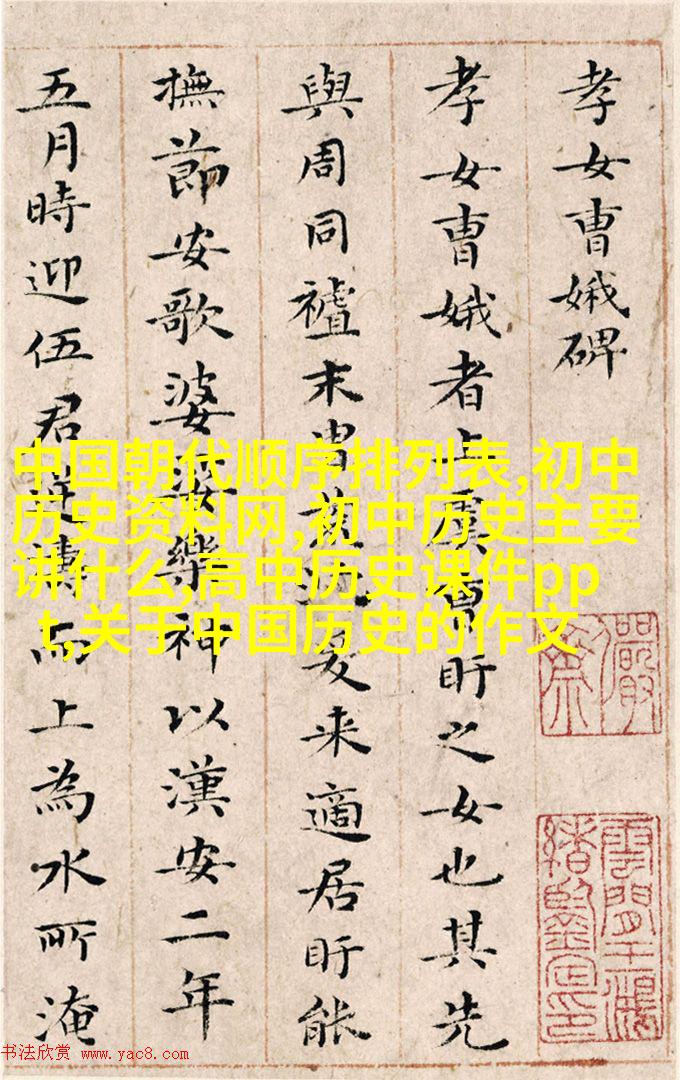 孝女曹娥碑
孝女曹娥者上虞曹盱之女也其先
與周同末胄荒爰来適居盱能
撫節安歌婆娑樂神以漢安二年
五月時迎伍君逆濤而上為水所淹
中国朝代顺序排列表,初中
历史资料网,初中历史主要
讲什么,高中历史课件pp
t,关于中国历史的作文
雲間王鴻
緒鑒定印
书法欣赏 www.yac8.com